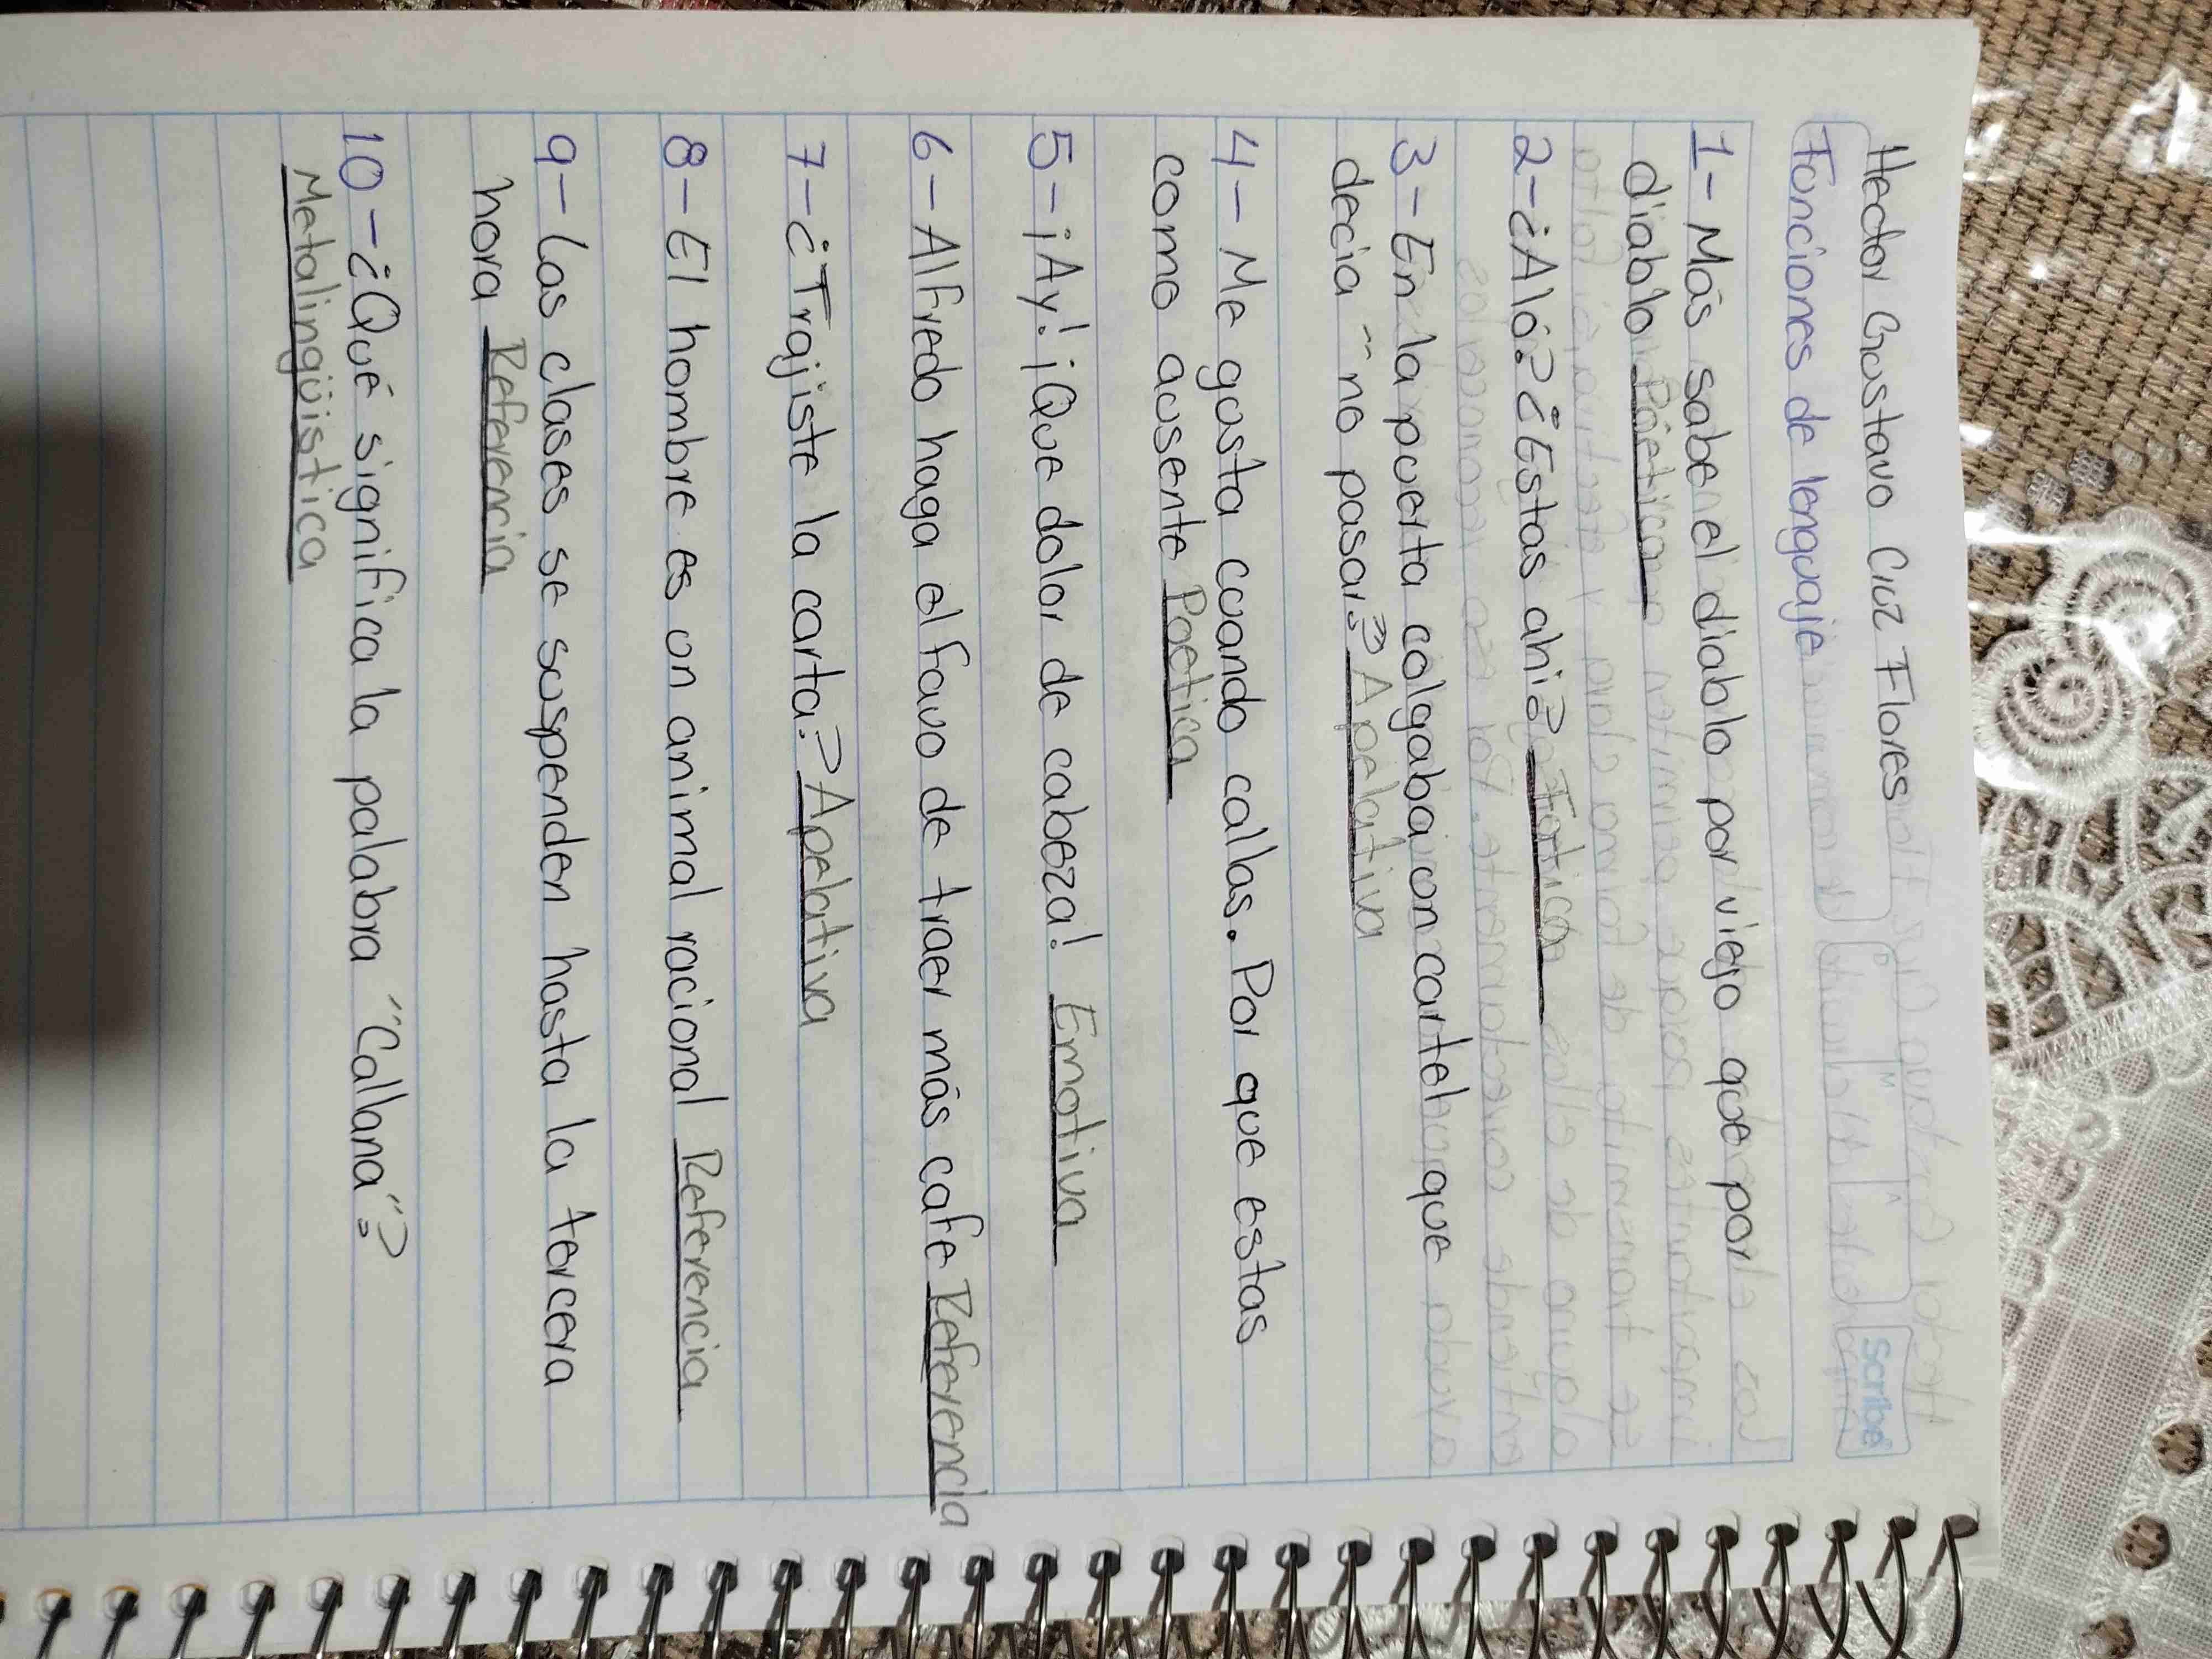 Hector Gustavo Cruz Flores
Scribe
Funciones de lenguaje
1- Más sabe el diablo por viejo que por
diablo Poética
2- ¿Aló? ¿Estas ahi? Fática
3- En la puerta colgaba un cartel que
decia "no pasar" Apelativa
4- Me gusta cuando callas. Por que estas
como ausente Poetica
5- ¡Ay! ¡Que dolor de cabeza! Emotiva
6- Alfredo haga el favo de traer más cafe Referencia
7- ¿Trajiste la carta? Apelativa
8- El hombre es un animal racional Referencia
9- Las clases se suspenden hasta la tercera
hora Referencia
10- ¿Qué significa la palabra "Callana"?
Metalingüistica